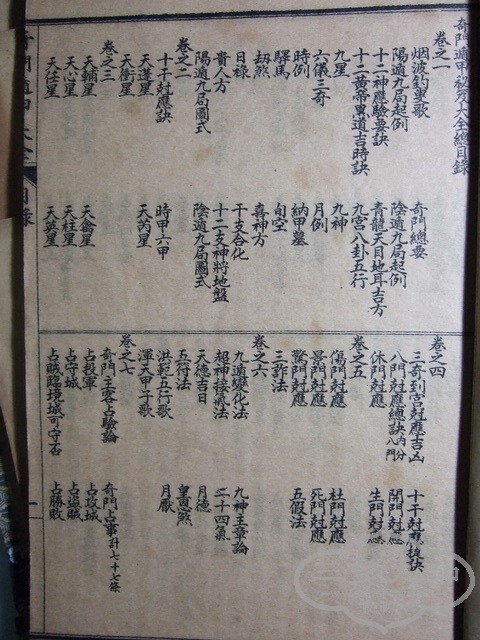 奇門遁甲秘笈大全總目錄
卷之一
烟波釣叟歌
奇門總要
陽遁九局起例
陰遁九局起例
十二神應驗要訣
青龍天目地耳吉方
十二黃帝黑道吉時訣
九宮八卦五行
九星
九神
六儀三奇
月例
時例
納甲墓
驛馬
旬空
劫煞
喜神方
日祿
干支合化
貴人方
十二支神將地盤
陽遁九局圖式
陰遁九局圖式
卷之二
十干尅應訣
時甲六甲
天蓬星
天芮星
天衝星
卷之三
天輔星
天禽星
天心星
天柱星
天任星
天英星
卷之四
三奇到宮尅應吉凶
十干尅應提訣
八門尅應總訣內分八門
開門尅應
休門尅應
生門尅應
卷之五
傷門尅應
杜門尅應
景門尅應
死門尅應
驚門尅應
五假法
三詐法
卷之六
九遁變化法
九神主章論
超神接氣法
二十四氣
天德吉日
月德
五符法
皇恩煞
洪範五行歌
月厭
渾天甲子歌
卷之七
奇門主客占驗論
奇門占事計七十七條
占投軍
占攻城
占守城
占盜賊
占賊臨境城可守否
占勝敗
目錄
一